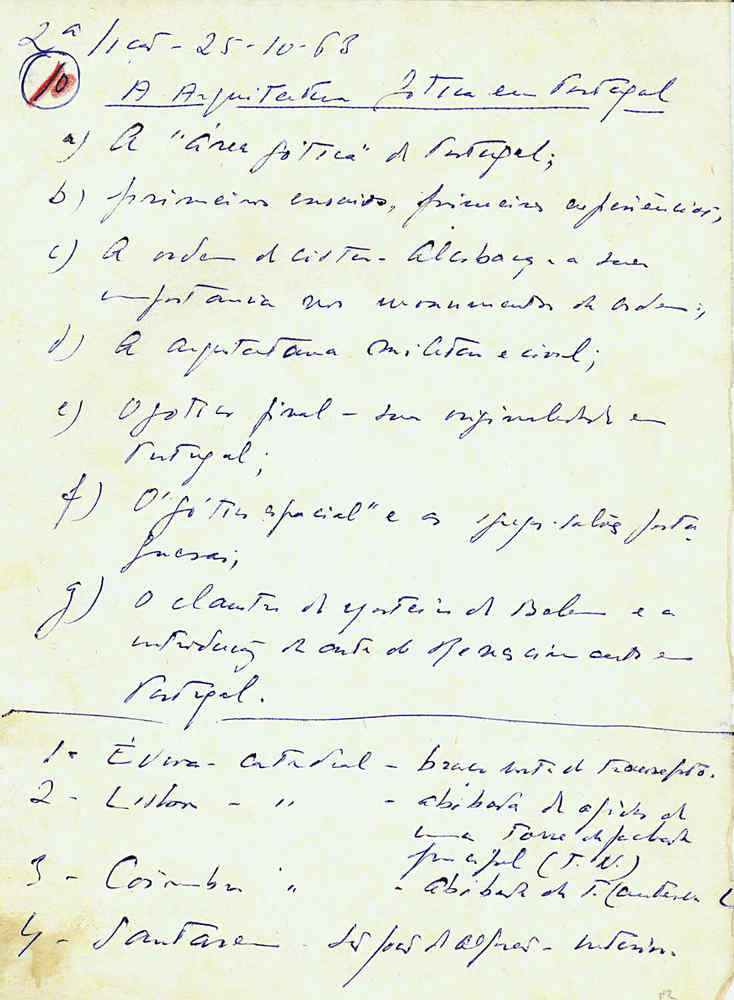 2ª lição - 25-10-63
10
A Arquitectura Gótica em Portugal
a) A "área gótica" de Portugal;
b) primeiros ensaios, primeiras experiências;
c) A ordem de Cister - Alcobaça - a sua
importância nos monumentos da ordem;
d) A arquitectura militar e civil;
e) O gótico final - sua originalidade em
Portugal;
f) O "gótico espacial" e as igrejas-salões portu-
guesas;
g) O claustro do mosteiro de Belem e a
introdução da arte do Renascimento em
Portugal.
1- Évora - catedral - braço norte do transepto.
2 - Lisboa - " - abóbada de ogivas de
uma torre da fachada
principal (T. N.)
3 - Coimbra " - abóbada da T.
4 - Santarem - São João de Alporão - interior.